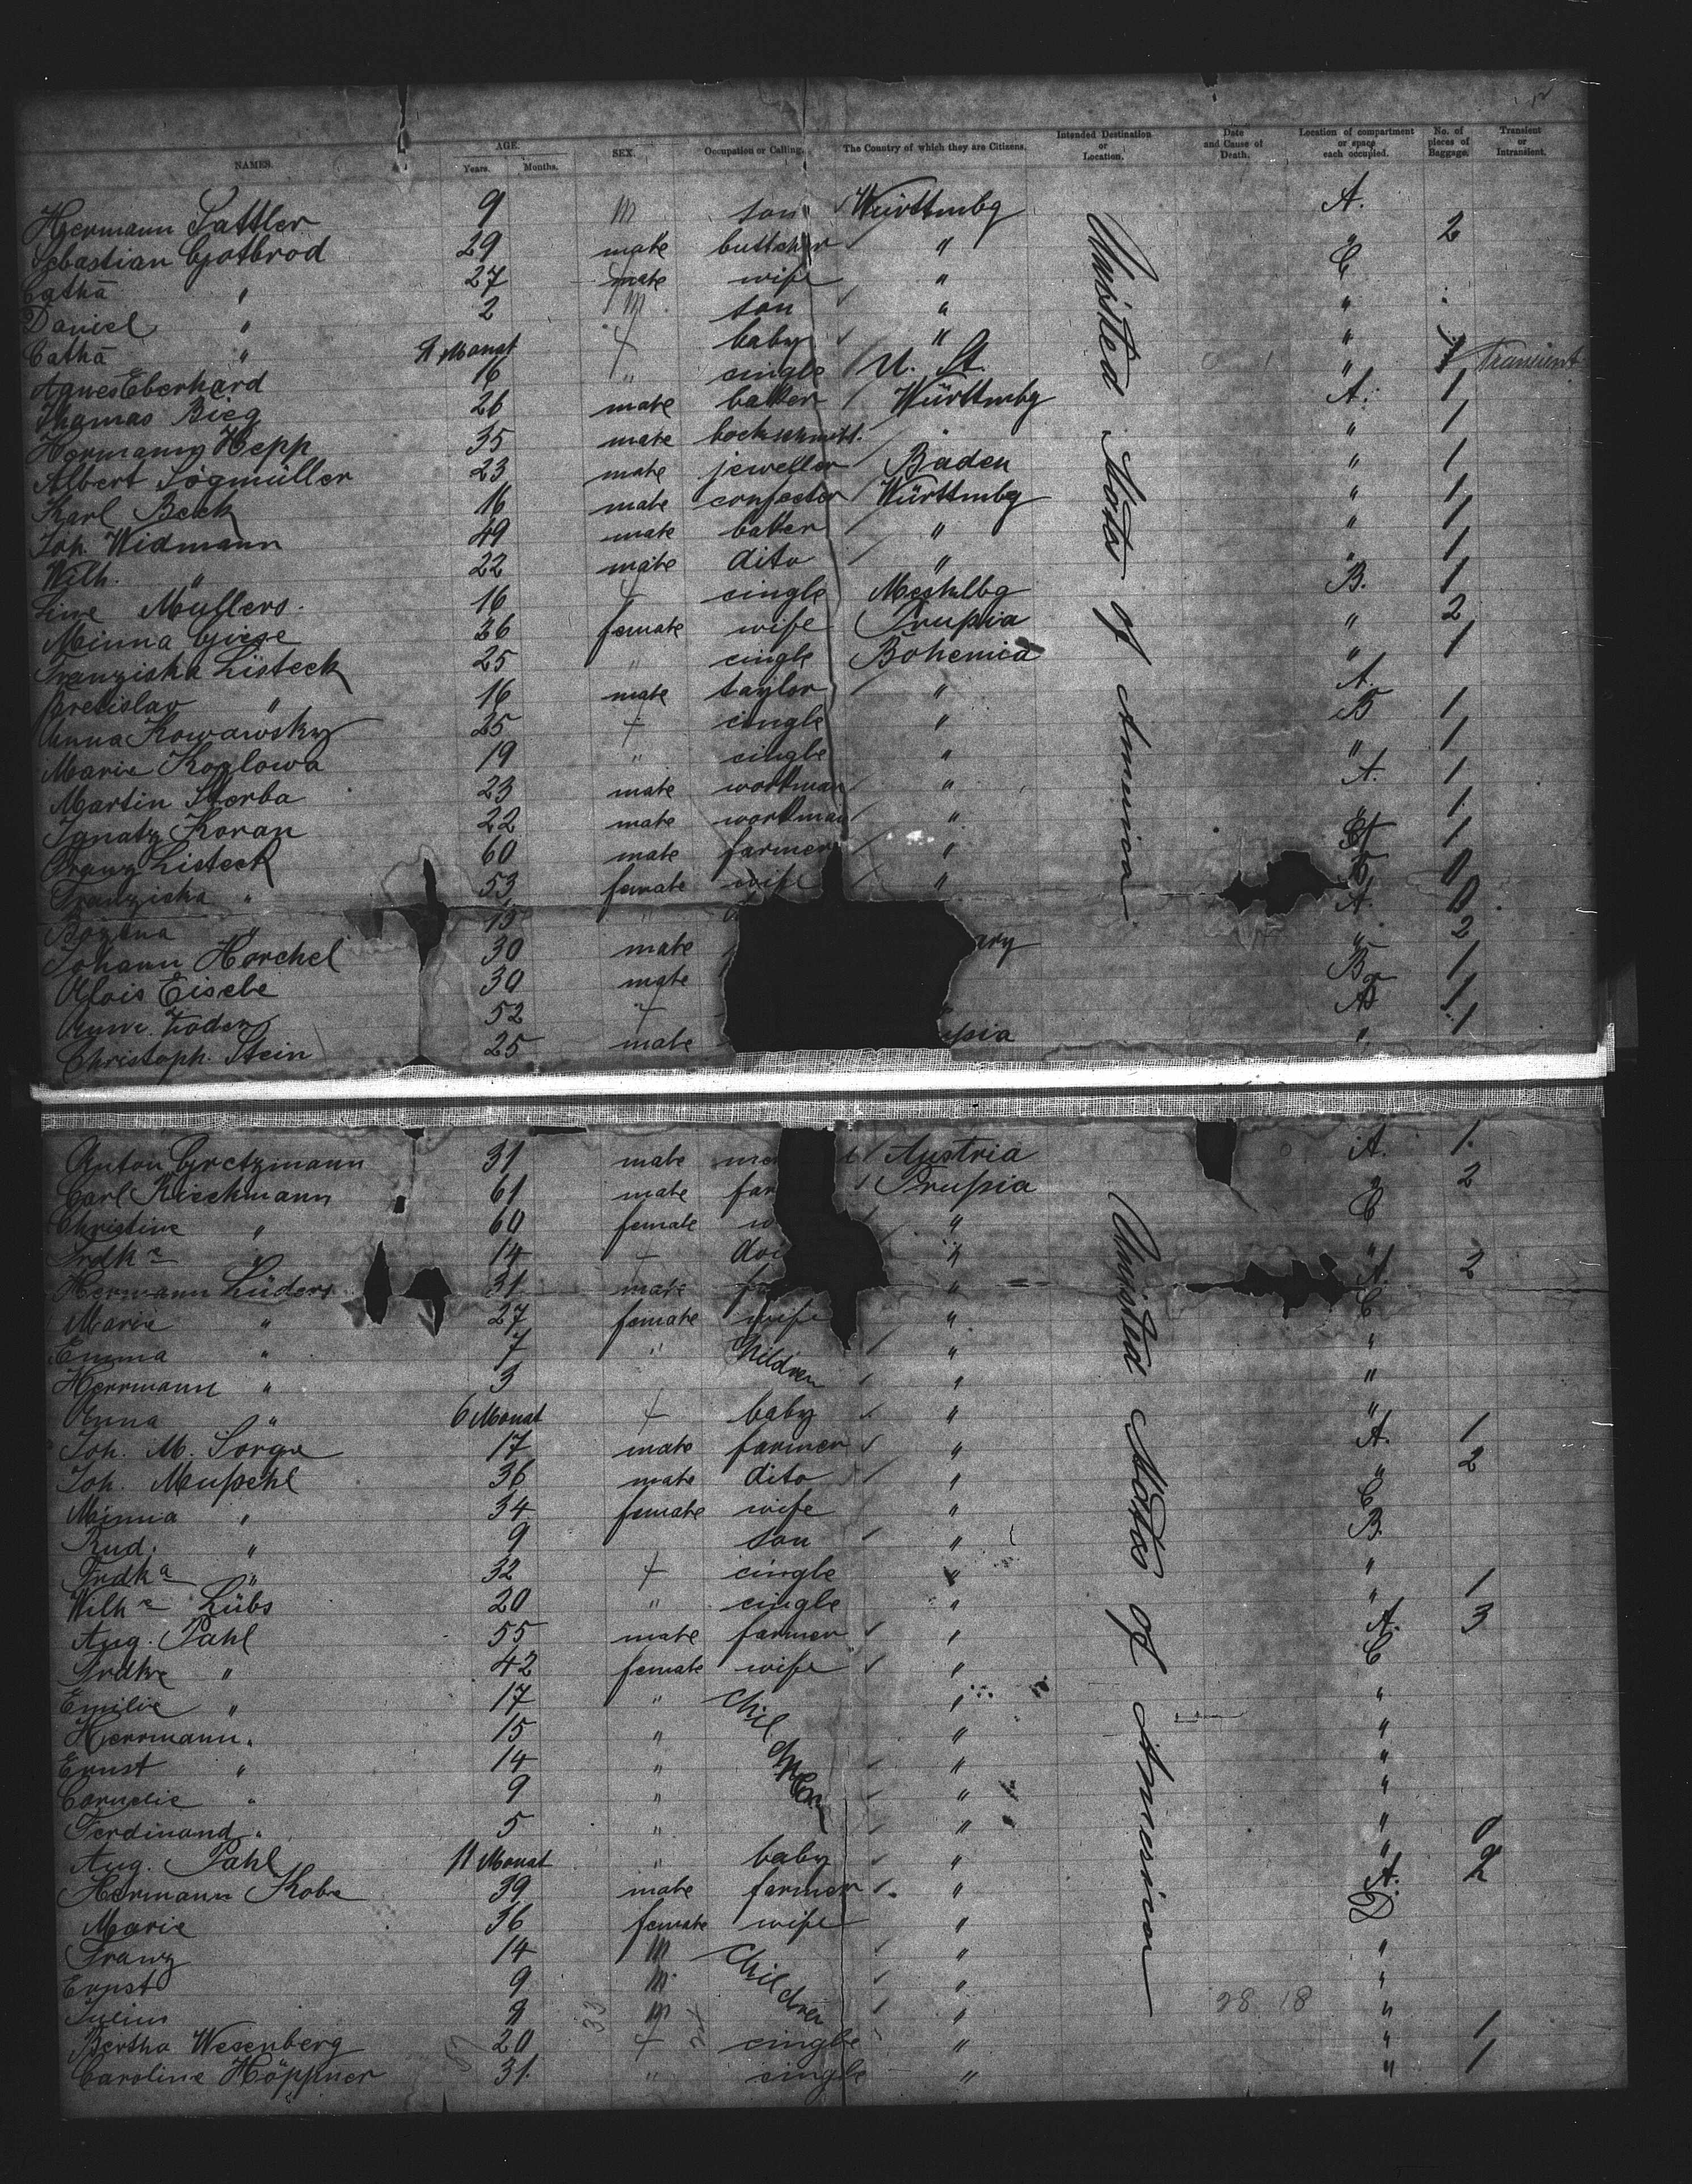 NAMES. AGE. Years. Months. SEX. Occupation or Calling. The Country of which they are Citizens. Intended Destination or Location. Date and Cause of Death. Location of compartment or space each occupied. No. of pieces of Baggage. Transient or Intransient.
Hermann Sattler 9 m son Württmbg A.
Sebastian Gotbrod 29 male buttcher " " 2
Catha " 27 wife " C
Daniel " 2 m son " "
Catha " Monat f baby " "
Agnes Eberhard 16 " cingle U. St. " 1 Transient
Thomas Bieg 26 male baker Württmbg A. 1
Hermann Hepp 35 male " 1
Albert Sögmüller 23 male jeweller Baden " 1
Karl Beck 16 male Württmbg " 1
Joh. Widmann 49 male baker " " 1
Wilh. " 22 male dito " " 1
Line Mullers. 16 f cingle Mecklbg B. 1
Minna Giese 26 female wife Prußia " 2
Franziska Listeck 25 " cingle Bohemia " 1
Bretislav " 16 male taylor " A.
Anna Kowawsky 25 f cingle " B 1
Marie Koglowa 19 " cingle " " 1
Martin Skerba 23 male workman " A. 1
Ignatz Koran 22 male workman " " 1
Franz Listeck 60 male farmer " 1
Franziska " 53 female wife "
Bozena " 15 " A.
Johann Horchel 30 male ary " 2
Alois Eisele 30 male B 1
52 f 1
Christoph. Stein 25 male ußia " 1
United States of America
Anton Gretzmann 31 male Austria A. 1.
Carl Rieckmann 61 male far Prußia " 2
Christine " 60 female w " C
Frdke " 14 f " "
Hermann Lüders 31 male " A. 2
Marie " 27 female wife " C
Emma " 7 " Children " "
Herrmann " 3 " "
Anna " 6 Monat f baby " "
Joh. M. Sorge 17 male farmer " A. 1
Joh. Mußehl 36 male dito " " 2
Minna " 34 female wife " C
Rud. " 9 son " B.
Frdka " 32 f cingle " "
Wilhe Lübs 20 " cingle " " 1
Aug. Pahl 55 male farmer " A. 3
Frdke " 42 female wife " C
Emilie " 17 " Children " "
Herrmann " 15 " " "
Ernst " 14 " " "
Cornelie " 9 " " "
Ferdinand " 5 " " "
Aug. Pahl 11 Monat " baby " " 0
Hermann Kobe 39 male farmer " A. 2
Marie 36 female wife " D
Franz 14 m Children " "
Ernst 9 m " "
Julius m " "
Bertha Wesenberg 20 f cingle " " 1
Caroline Höppner 31. " cingle " " 1
United States of America
33
28 18